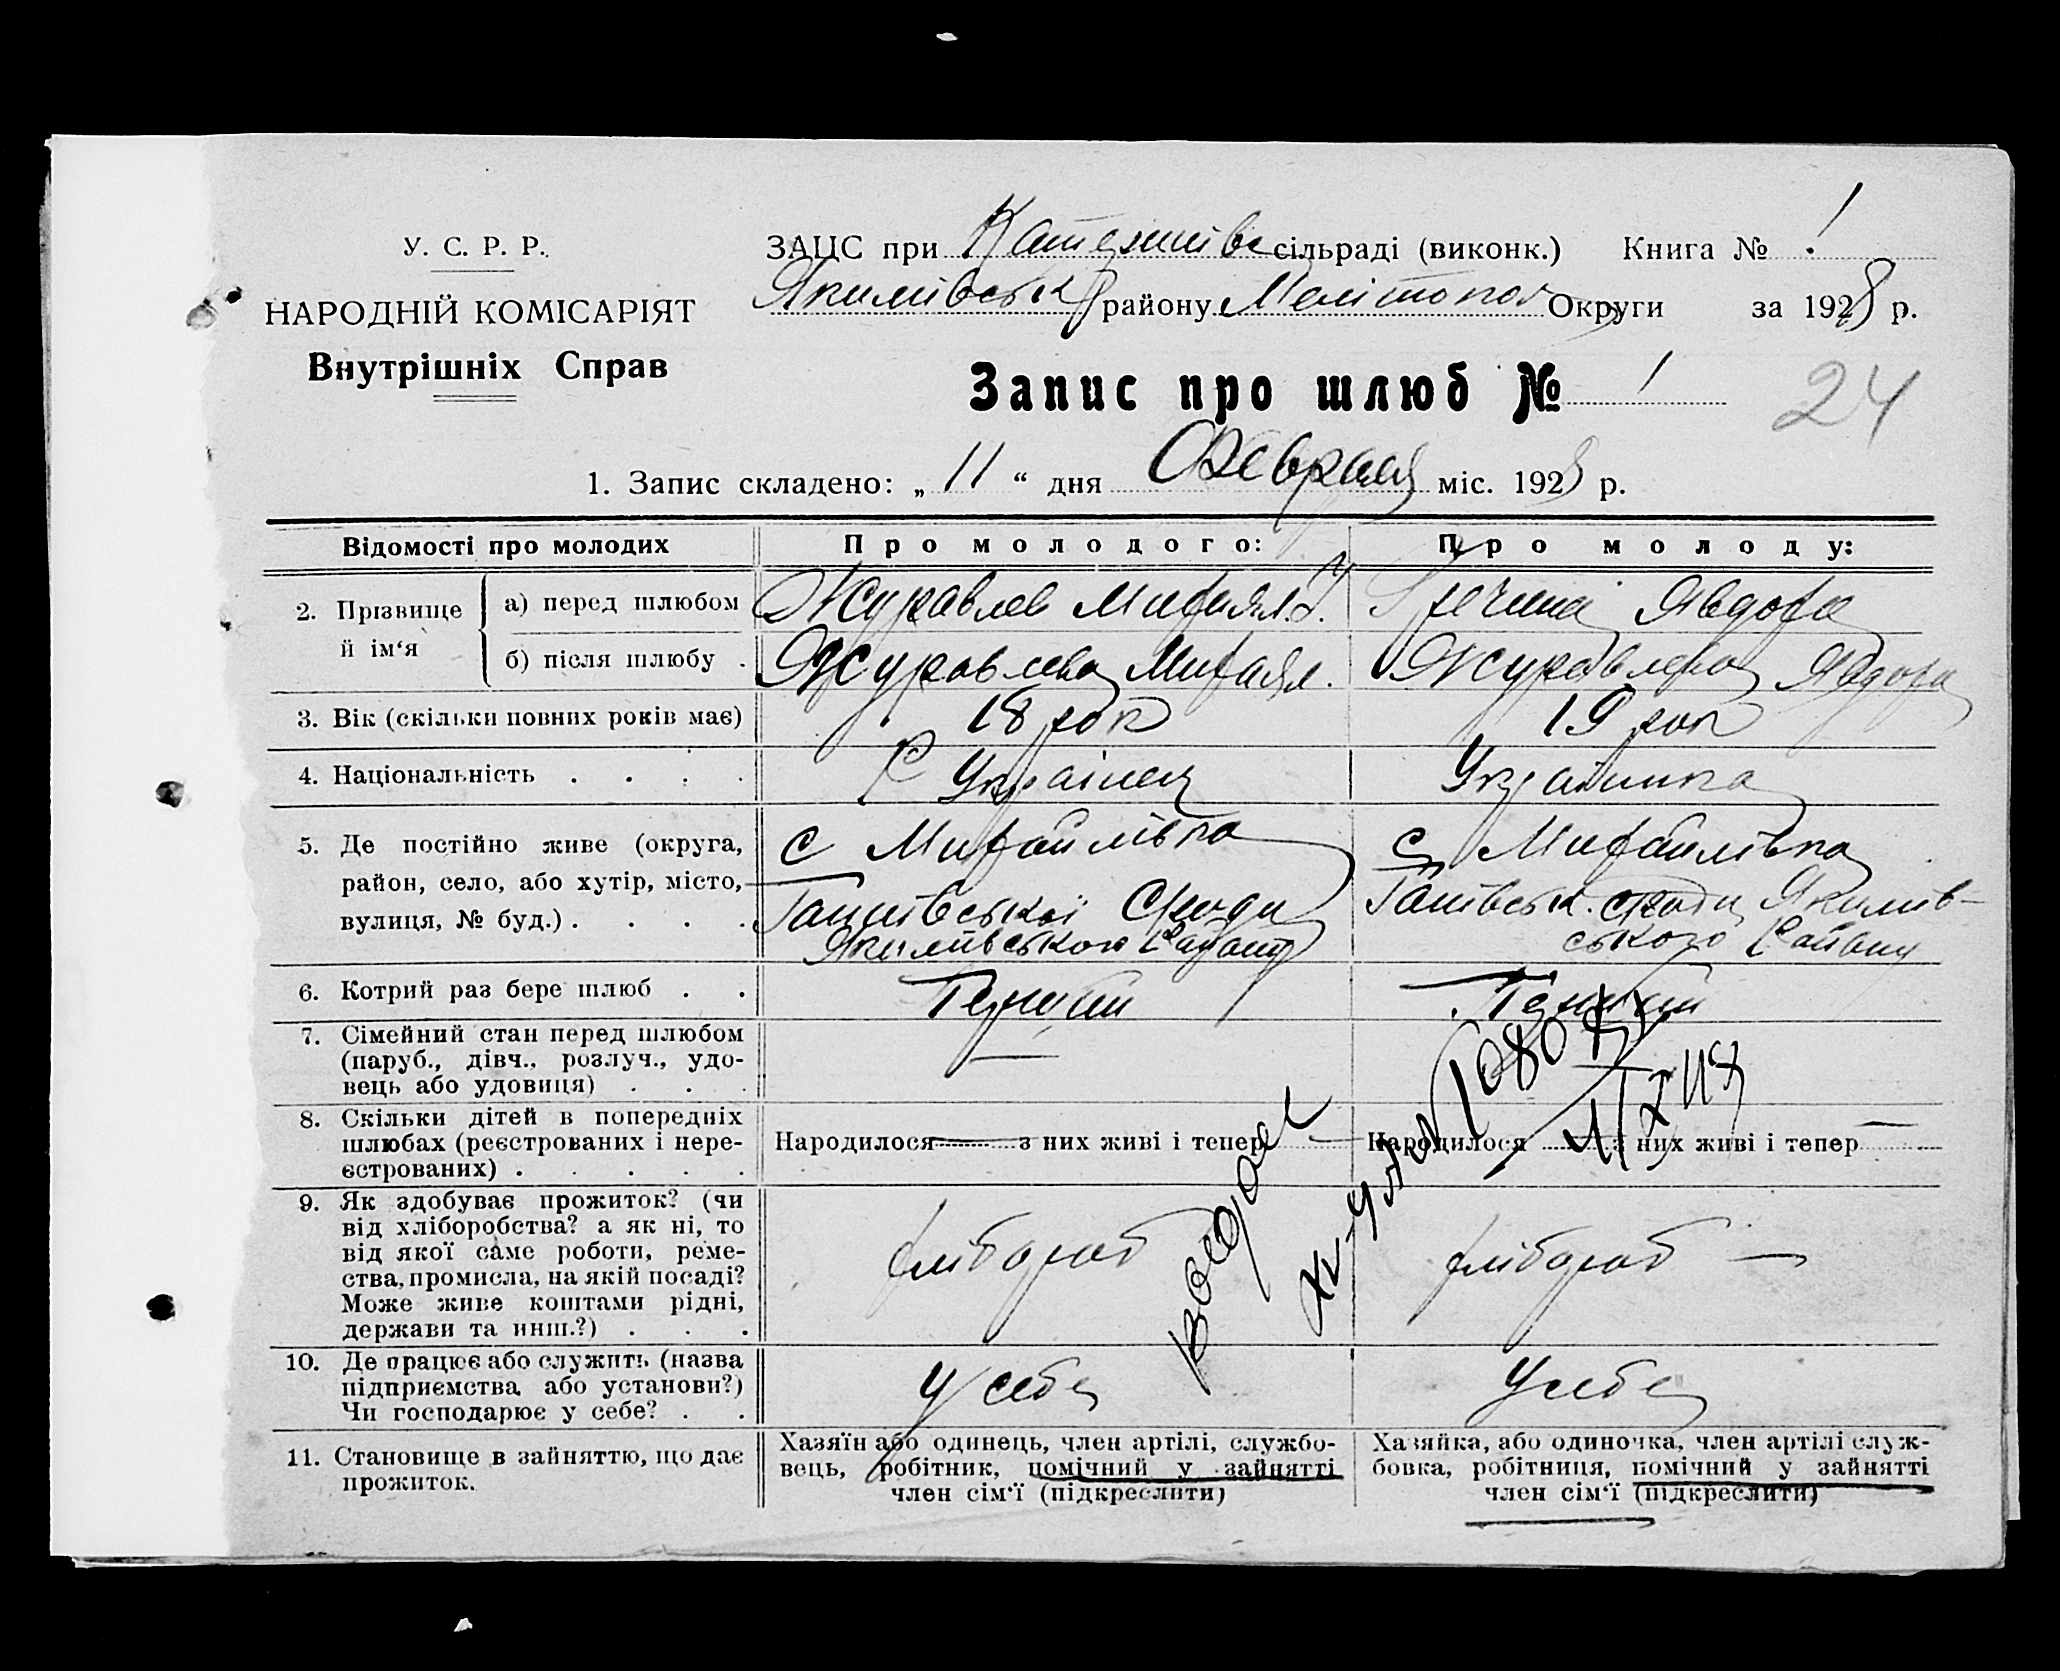 У. С. Р. Р.
НАРОДНІЙ КОМІСАРІЯТ
Внутрішніх Справ
ЗАЦС при сільраді (виконк.) Книга № 1
Якимівськ району Мелітопол Округи за 1928 р.
Запис про шлюб № 1
24
1. Запис складено: „ 11 “ дня Февраля міс. 1928 р.
Відомості про молодих Про молодого: Про молоду:
2. Прізвище й ім‘я
а) перед шлюбом Журавлев Михаял. Явдоха
б) після шлюбу . Журавлева Михаял. Журавлева Явдоха
3. Вік (скільки повних років має) 18 рок 19 рок
4. Національність . . . . Українец Українка
5. Де постійно живе (округа, с Михайлівка с Михайлівка
район, село, або хутір, місто,
вулиця, № буд.) . . . . Ганнівської Сради Ганівськ. сради Якимів-
Якимівського Району ського Району
6. Котрий раз бере шлюб . . Первий Первий
7. Сімейний стан перед шлюбом —
(паруб., дівч., розлуч., удо-
вець або удовиця) . . .
8. Скільки дітей в попередніх
шлюбах (реєстрованих і нере- Народилося — з них живі і тепер — Народилося з них живі і тепер —
єстрованих) . . . . .
9. Як здобуває прожиток? (чи
від хліборобства? а як ні, то
від якої саме роботи, реме- хлібороб хлібороб —
ства, промисла, на якій посаді?
Може живе коштами рідні,
держави та инш.?) . . .
10. Де працює або служить (назва
підприємства або установи?) У себе У себе
Чи господарює у себе? . .
11. Становище в зайняттю, що дає
прожиток.
Хазяїн або одинець, член артілі, службо-
вець, робітник, помічний у зайнятті
член сім‘ї (підкреслити)
Хазяйка, або одиночка, член артілі служ-
бовка, робітниця, помічний у зайнятті
член сім‘ї (підкреслити)